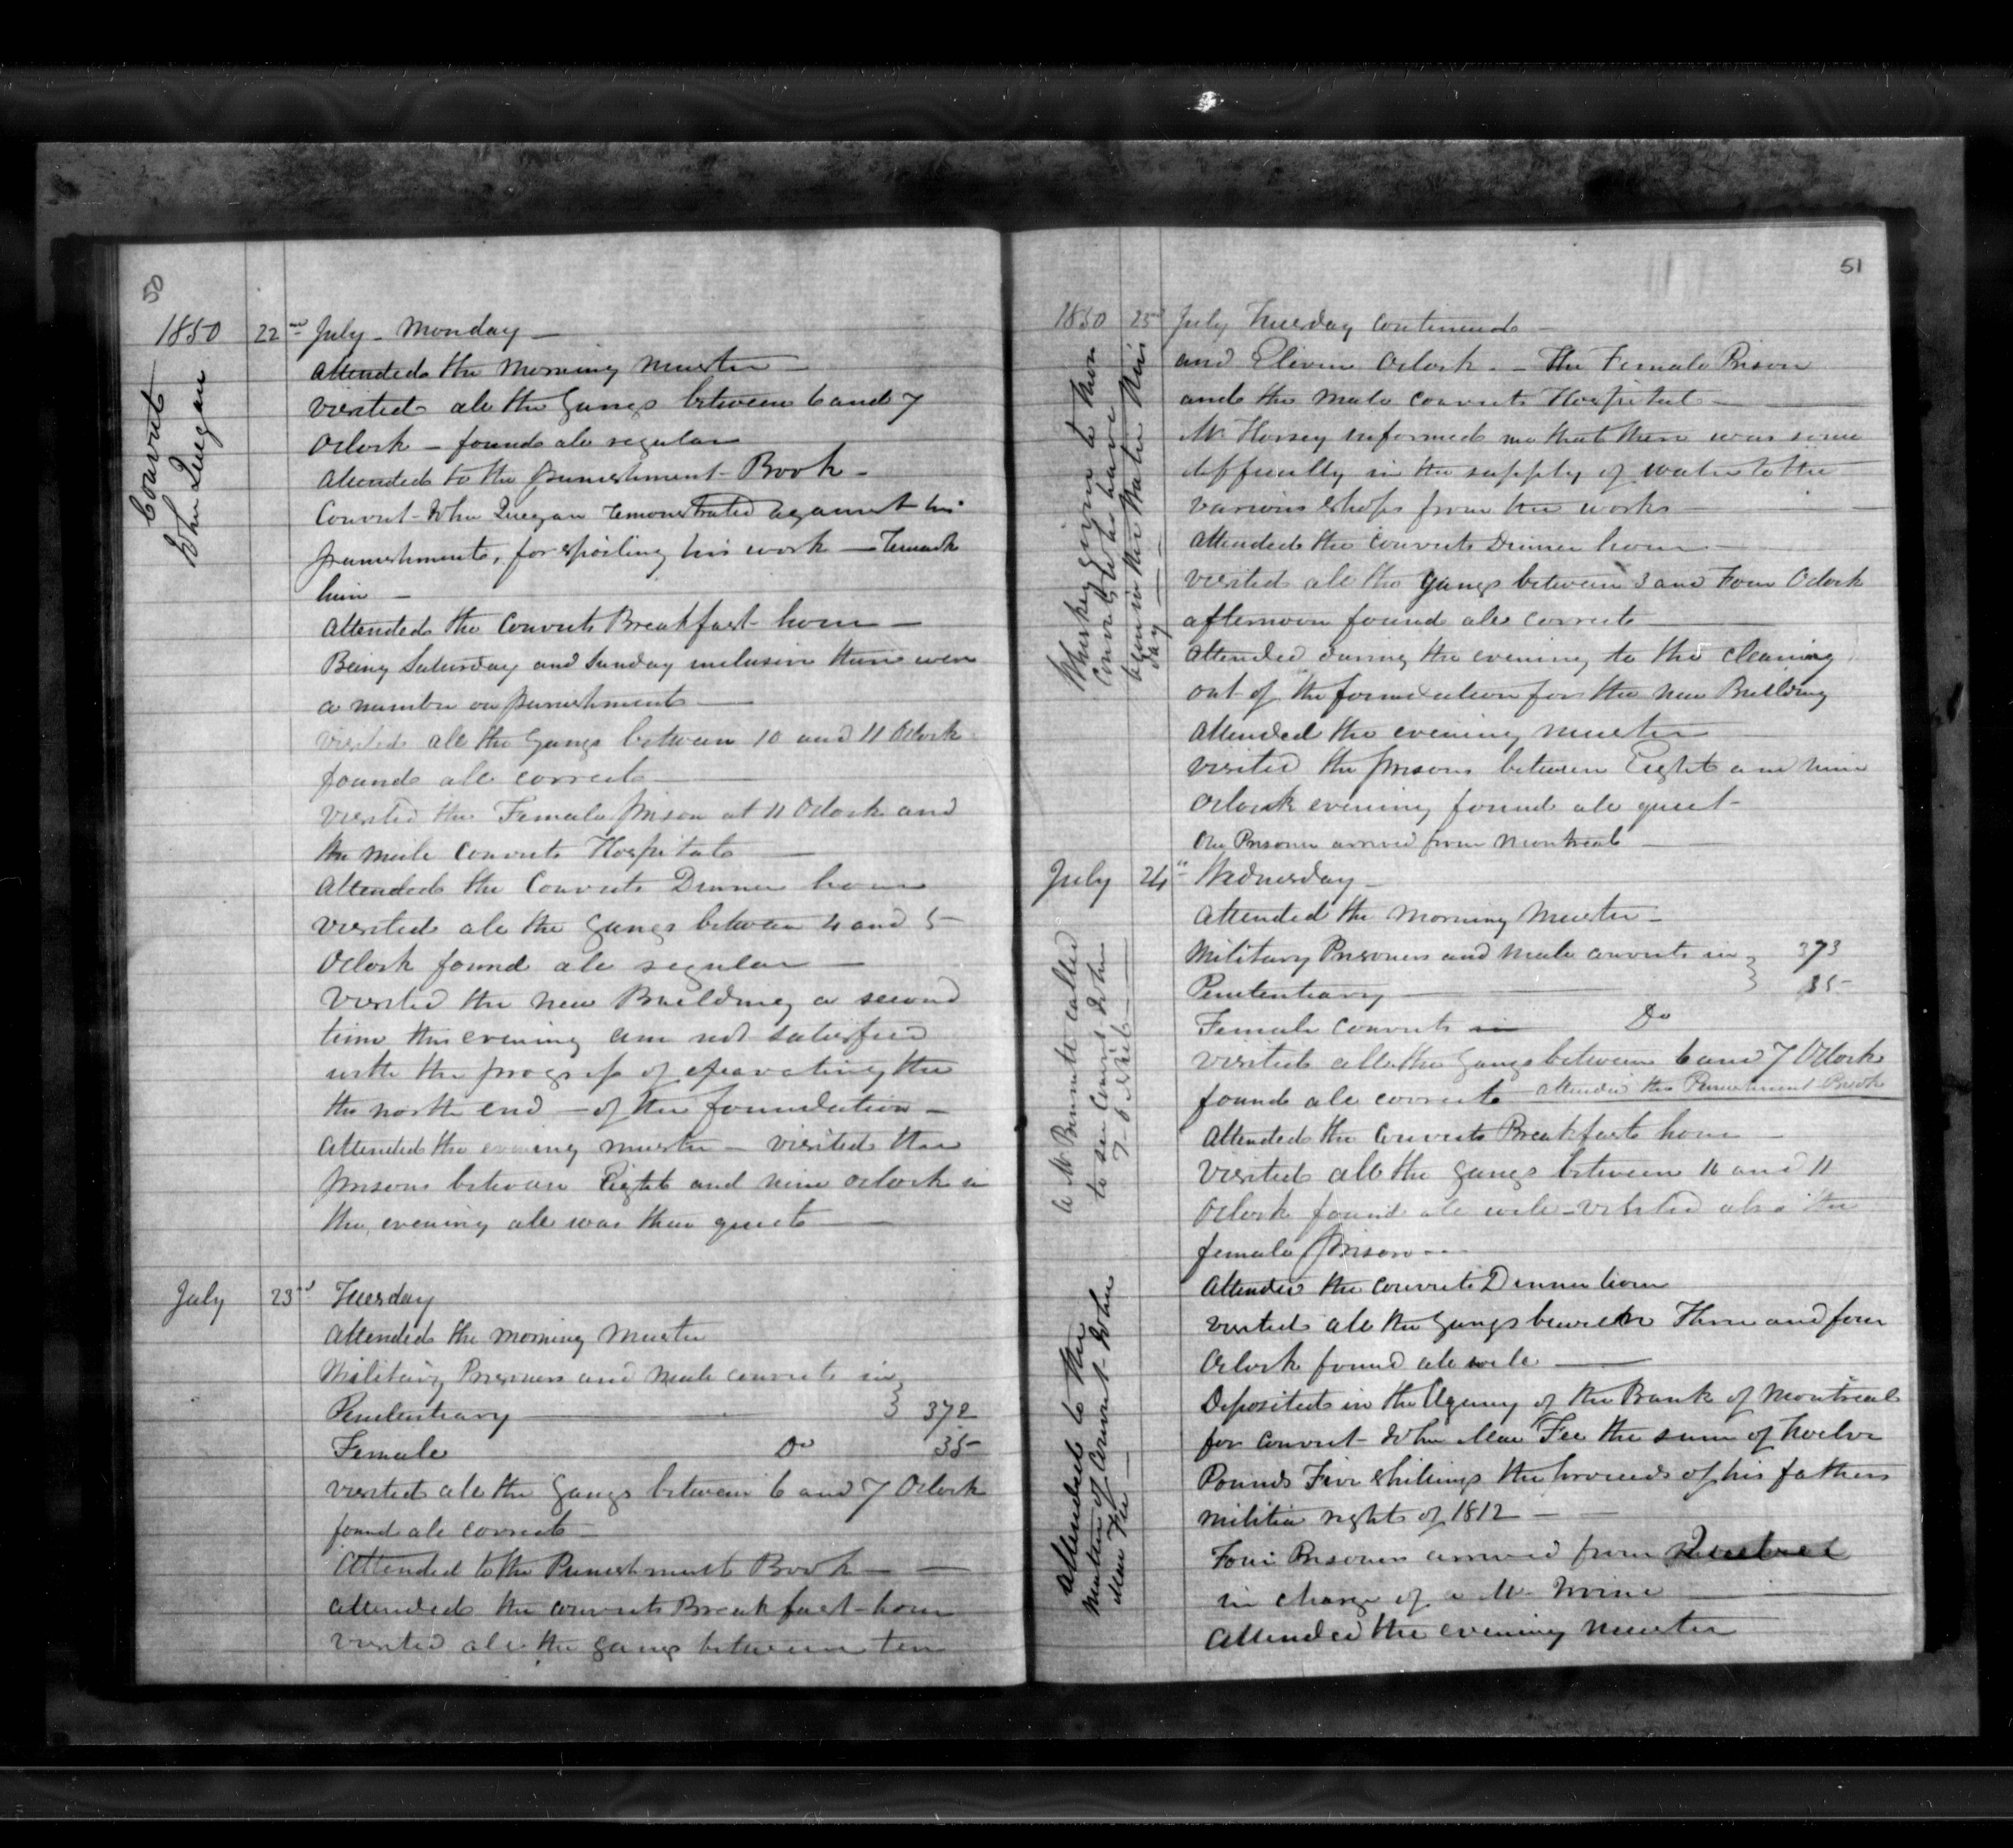 50
1850 22nd July - Monday -
Convict
John Quegan
Attended the Morning Muster -
visited all the Gangs between 6 and 7
Oclock - found all regular
Attended to the punishment Book -
Convict John Quegan remonstrated against his
punishment, for spoiling his work -
him -
Attended the Convicts Breakfast hour -
Being Saturday and Sunday inclusive there were
a number on punishment -
visited all the Gangs between 10 and 11 Oclock
found all correct -
visited the Female prison at 11 Oclock and
the male Convicts Hospital -
Attended the Convicts Dinner hour
visited all the Gangs between 4 and 5
Oclock found all regular -
Visited the new Building a second
time this evening am not satisfied
with the progress of the
the north end - of the foundation -
Attended the evening muster - visited the
prisons between Eight and nine oclock in
the evening all was then quiet -
July 23rd Tuesday
Attended the morning Muster
Military Prisoners and Male convicts in
Penitentiary - } 372
Female Do 35
visited all the Gangs between 6 and 7 Oclock
found all correct -
Attended to the Punishment Book -
Attended the convicts Breakfast hour
visited all the gangs between ten
51
1850 23rd July Tuesday Continued -
Whiskey given to those
Convicts who have
been in the Water this
day -
and Eleven Oclock. - The Female Prison
and the Male Convicts Hospital -
Mr Horsey informed me that there was some
difficulty in the supply of water to the
various shops from the works -
Attended the Convicts Dinner hour -
visited all the Gangs between 3 and Four Oclock
afternoon found all correct -
Attended during the evening to the cleaning
out of the foundation for the new Building
Attended the evening muster
visited the prisons between Eight and nine
Oclock evening found all quiet -
One Prisoner arrived from Montreal -
July 24th Wednesday -
A Mr called
to see Convict John
Attended the Morning Muster -
Military Prisoners and Male convicts in } 373
Penitentiary - 35
Female convicts in Do
visited all the Gangs between 6 and 7 Oclock
found all correct - attended the Punishment Book
Attended the Convicts Breakfast hour -
visited all the gangs between 10 and 11
Oclock found all well - visited also the
female prison -
Attended the convicts Dinner hour
Attended to the
matter of Convict John
Mac Fee -
visited all the Gangs between Three and four
Oclock found all well -
Deposited in the Agency of the Bank of Montreal
for Convict John Mac Fee the sum of Twelve
Pounds Five shillings the proceeds of his fathers
militia right of 1812 -
Four Prisoners arrived from
in charge of a Mr Irvine -
Attended the evening muster